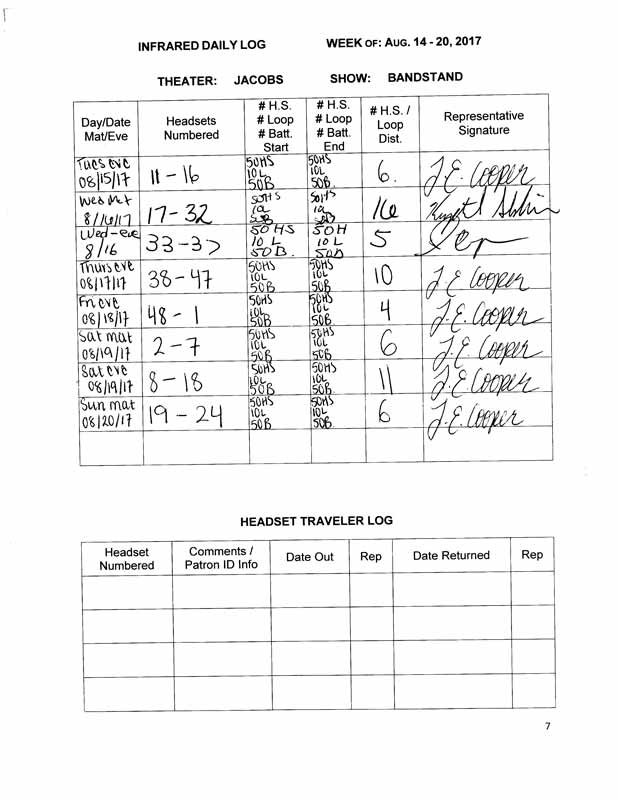 INFRARED DAILY LOG WEEK OF: AUG. 14 - 20, 2017
THEATER: JACOBS SHOW: BANDSTAND
Day/Date Mat/Eve Headsets Numbered # H.S. # Loop # Batt. Start # H.S. # Loop # Batt. End # H.S. / Loop Dist. Representative Signature
Tues eve 08/15/17 11 - 16 50HS 10L 50B 50HS 10L 50B. 6. J.E. Cooper
Wed Mat 8/16/17 17 - 32 50HS 10L 50B 50HS 10L 50B 16
Wed - eve 8/16 33 - 37 50 HS 10 L 50 B. 50 H 10 L 50B 5
Thurs eve 08/17/17 38 - 47 50HS 10L 50B 50HS 10L 50B 10 J.E. Cooper
Fri eve 08/18/17 48 - 1 50HS 10L 50B 50HS 10L 50B 4 J.E. Cooper
Sat mat 08/19/17 2 - 7 50HS 10L 50B 50HS 10L 50B 6 J.E. Cooper
Sat eve 08/19/17 8 - 18 50HS 10L 50B 50HS 10L 50B. 11 J.E. Cooper
Sun mat 08/20/17 19 - 24 50HS 10L 50B 50HS 10L 50B. 6 J.E. Cooper
HEADSET TRAVELER LOG
Headset Numbered Comments / Patron ID Info Date Out Rep Date Returned Rep
7